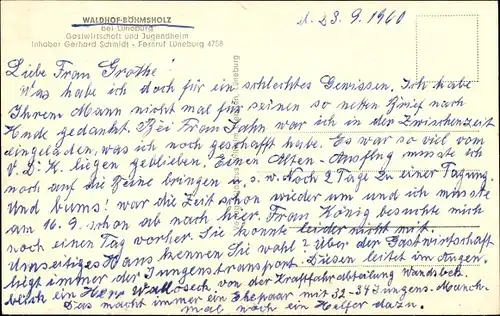 WALDHOF-BÖHMSHOLZ
bei Lüneburg
Gastwirtschaft und Jugendheim
Inhaber Gerhard Schmidt - Fernruf Lüneburg 4758
d. 23. 9. 1960
Liebe Frau Grothe!
Was habe ich doch für ein schlechtes Gewissen. Ich habe
Ihrem Mann nicht mal für seinen so netten Brief nach
gedankt. Bei Frau Jahn war ich in der Zwischenzeit
eingeladen, was ich noch geschafft habe. Es war so viel vom
V. D. K. liegen geblieben. Einen Alten-Ausflug musste ich
noch auf die Beine bringen u. s. w. Noch 2 Tage zu einer Tagung.
Und bums! war die Zeit schon wieder um und ich musste
am 16. 9. schon ab nach hier. Frau König besuchte mich
noch einen Tag vorher. Sie konnte leider nicht mit.
Umseitiges Haus kennen Sie wohl? über der Gastwirtschaft
liegt immer der Jungenstransport. Diesen leitet im Augen-
blick ein Herr Walloseck von der Kraftfahrabteilung Wandsbek.
Das macht immer ein Ehepaar mit 32-34 Jungens. Manch-
mal noch ein Helfer dazu.